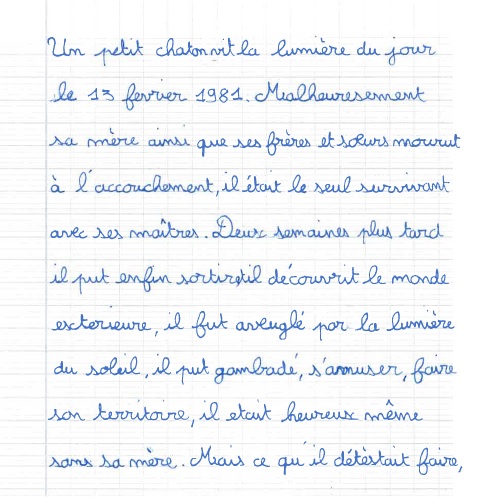 Un petit chaton vit la lumière du jour
le 13 fevrier 1981. Malheuresement
sa mère ainsi que ses frères et sœurs mourut
à l'accouchement, il était le seul survivant
avec ses maîtres. Deux semaines plus tard
il put enfin sortir et il découvrit le monde
exterieure, il fut aveuglé par la lumière
du soleil, il put gambadé, s'amuser, faire
son territoire, il etait heureux même
sans sa mère. Mais ce qu'il détèstait faire,